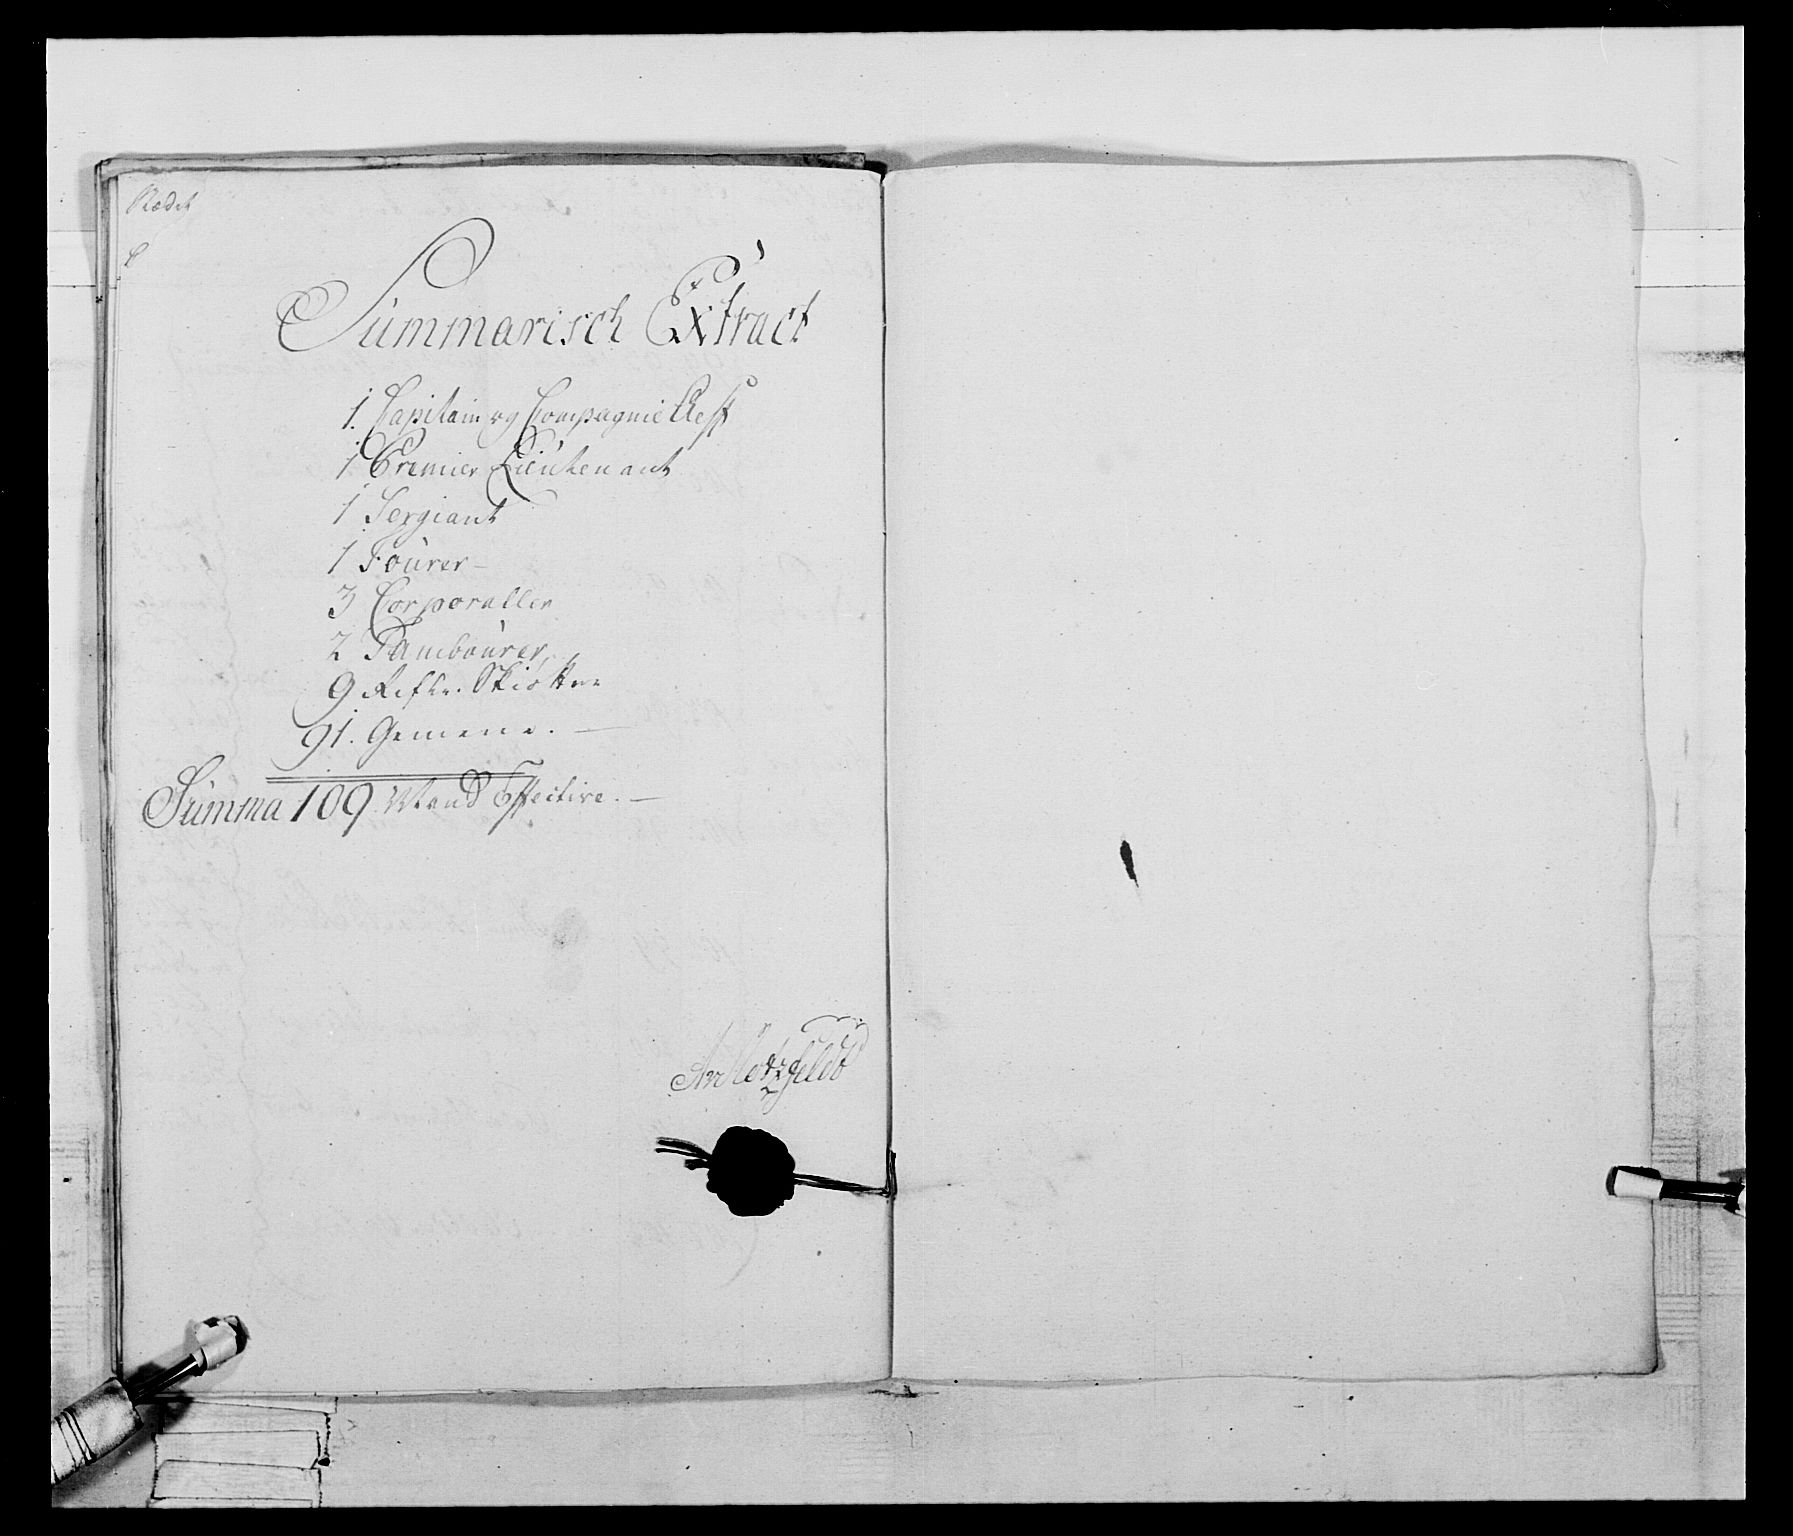 Summarisch Extract
1. Capitain og Compagnie Cheff
1 Premier Lieutenant
1 Sergiant
1 Fourer –
3 Corporaller
2 Tambourer
9 Rifle. Skiøtter
91. Gemene. —
Summa 109 Mand Effective. —